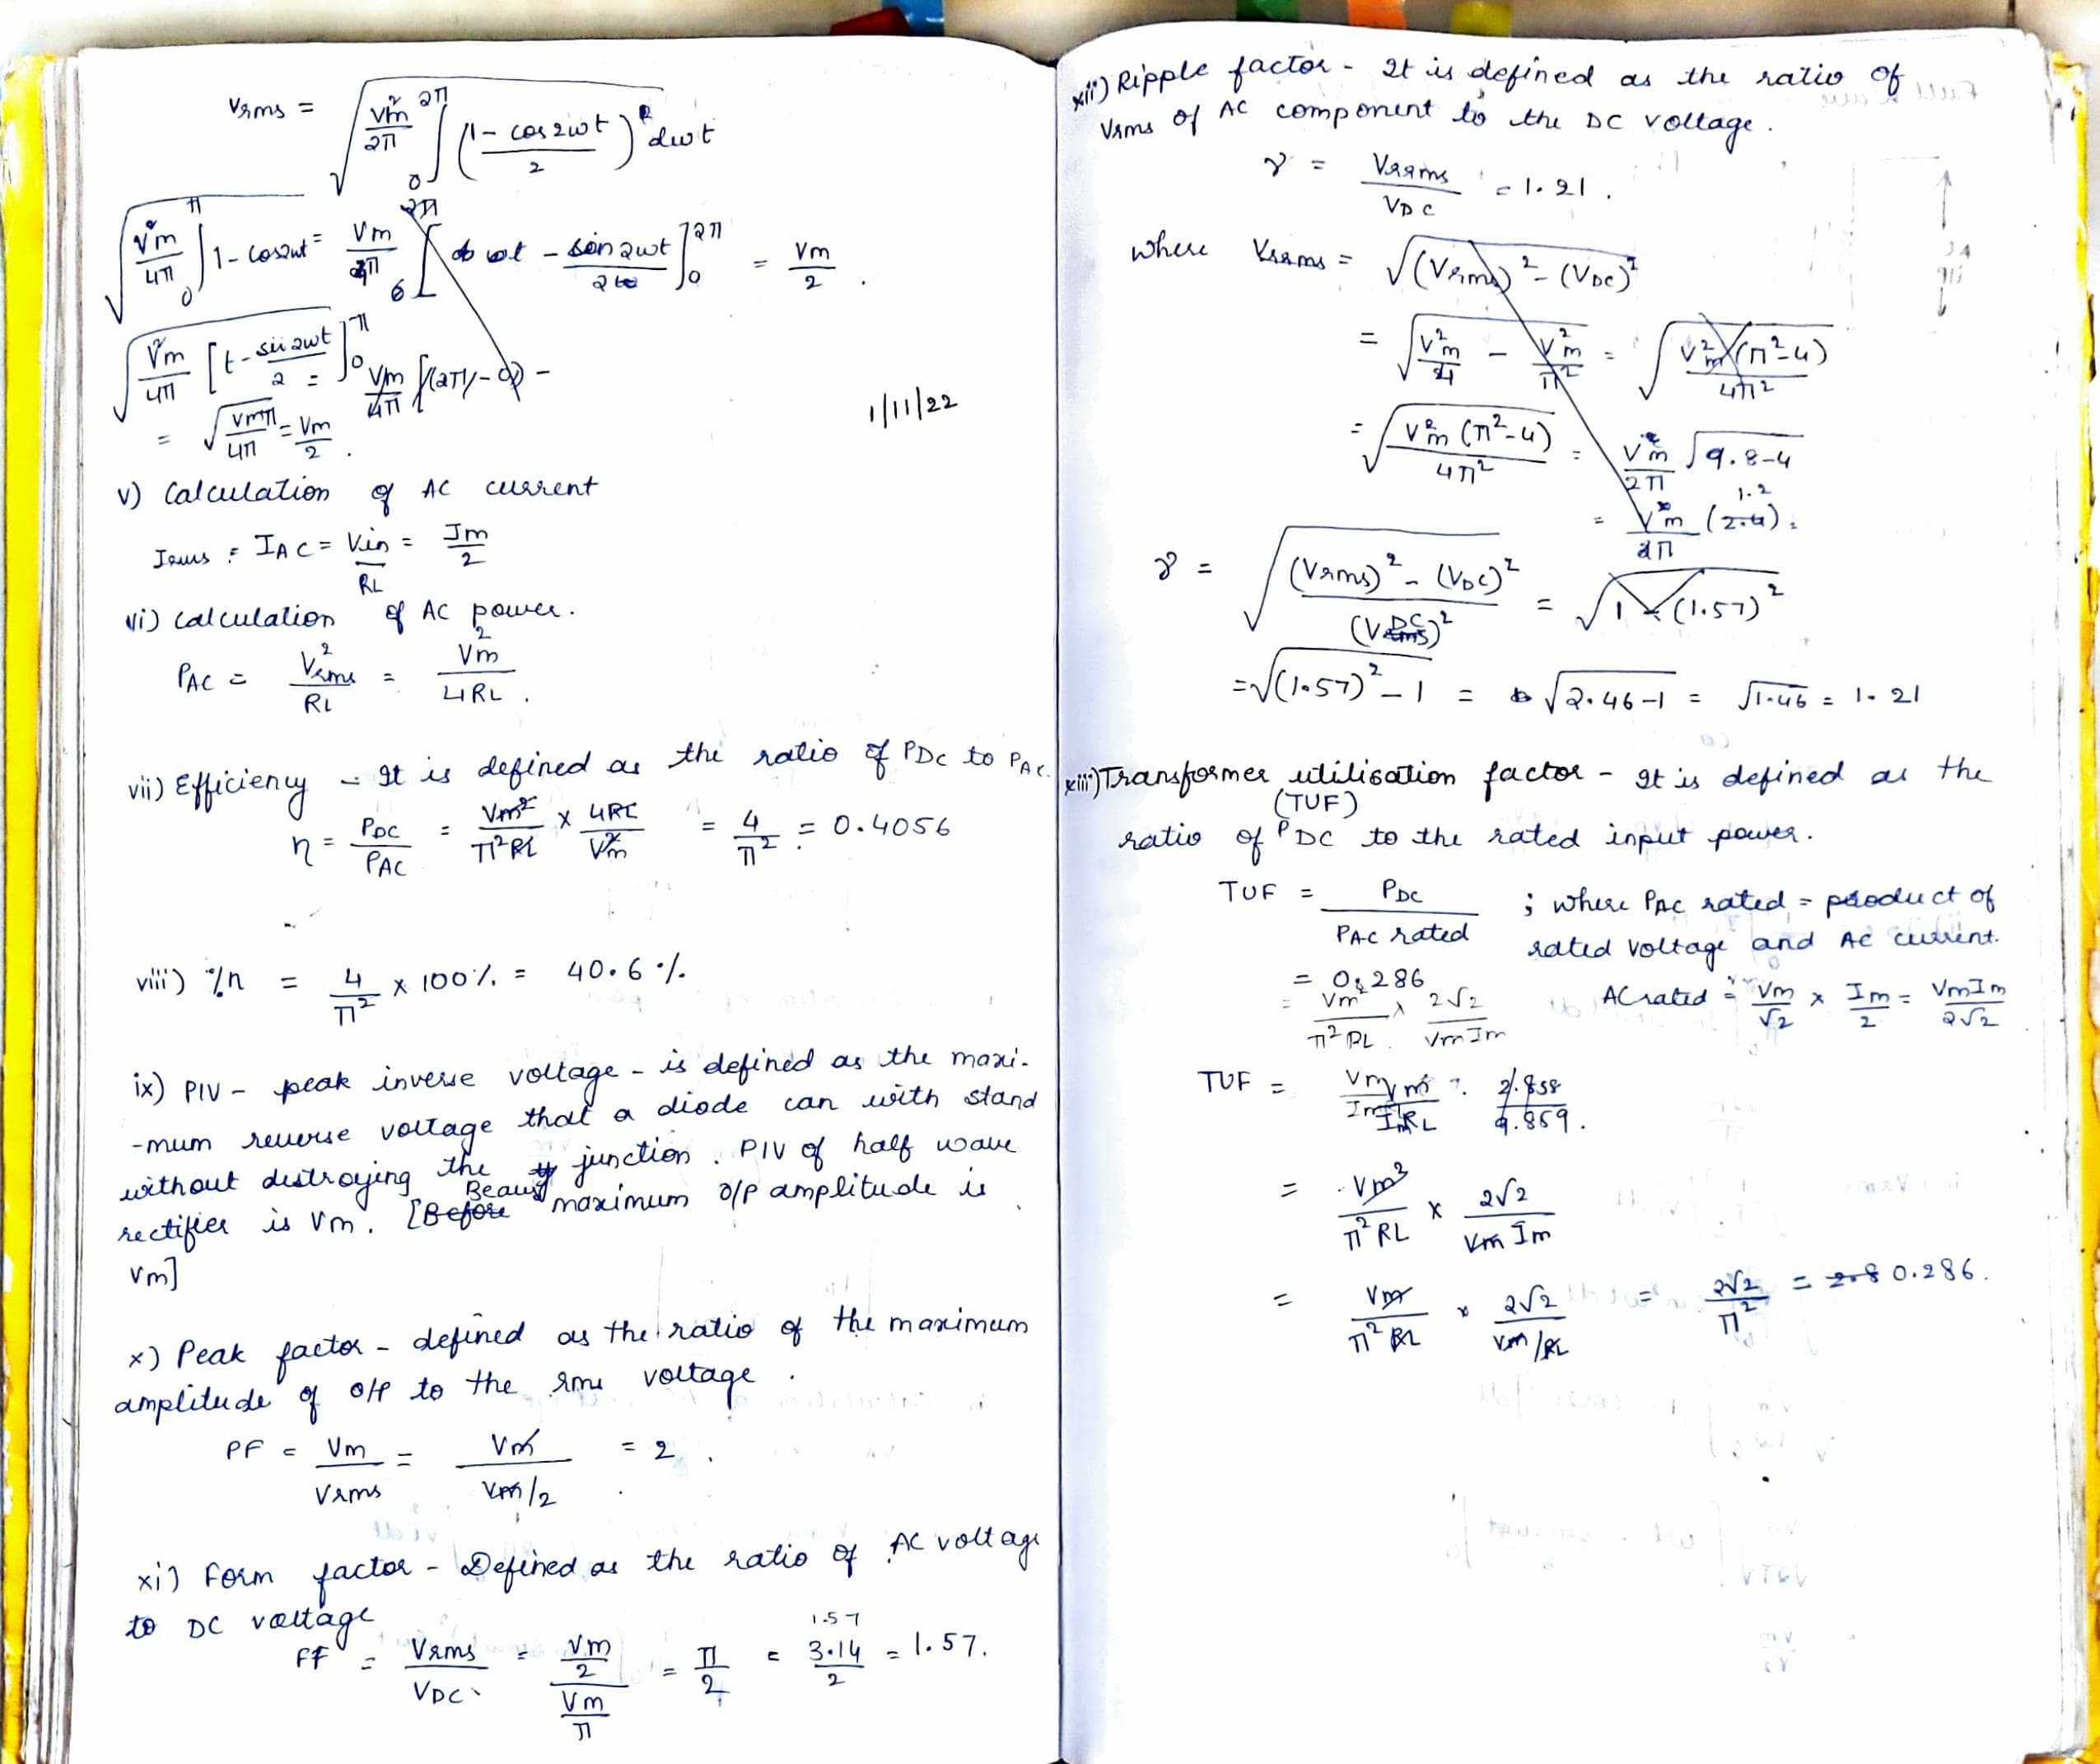 Vrms = √( Vm²/2π ∫₀^2π ( (1 - cos2wt)/2 )² dwt
√( Vm²/4π ∫₀^π 1 - cos2wt = Vm/2π [ wt - sin2wt/2 ]₀^2π = Vm/2 .
√( Vm²/4π [t - sin2wt/2]₀^π = Vm/4π [(2π) - 0] -
= √(Vmπ/4π) = Vm/2 .
1/11/22
v) Calculation of AC current
Irms = IAC = Vin/RL = Im/2
vi) Calculation of AC power.
PAC = V²rms/RL = Vm²/4RL .
vii) Efficiency - It is defined as the ratio of PDC to PAC.
η = PDC/PAC = Vm²/π²RL x 4RL/Vm² = 4/π² = 0.4056
viii) %η = 4/π² x 100% = 40.6 %.
ix) PIV - peak inverse voltage - is defined as the maxi-
-mum reverse voltage that a diode can with stand
without distroying the junction. PIV of half wave
rectifier is Vm. [Before maximum o/p amplitude is
Vm]
x) Peak factor - defined as the ratio of the maximum
amplitude of o/p to the rms voltage .
PF = Vm/Vrms = Vm/(Vm/2) = 2 .
xi) Form factor - Defined as the ratio of AC voltage
to DC voltage
FF = Vrms/VDC = (Vm/2)/(Vm/π) = π/2 = 3.14/2 = 1.57.
1.57
xii) Ripple factor - It is defined as the ratio of
Vrms of AC component to the DC voltage .
γ = Vrrms/VDC = 1.21 .
where Vrrms = √((Vrms)² - (VDC)²
= √(V²m/4 - V²m/π²) = √(V²m(π²-4)/4π²)
= √(Vm²(π²-4)/4π²) = Vm/2π √9.8-4
= Vm/2π (2.4) .
1.2
γ = √(((Vrms)² - (VDC)²)/(VDC)²) = √1 - (1.57)²
= √(1.57)² - 1 = √2.46-1 = √1.46 = 1.21
xiii) Transformer utilisation factor - It is defined as the
(TUF)
ratio of PDC to the rated input power.
TUF = PDC/PAC rated ; where PAC rated = product of
rated voltage and AC current.
= 0.286
ACrated = Vm/√2 x Im/2 = VmIm/2√2
= Vm²/π²RL x 2√2/VmIm
TUF = Vm/ImRL . 2.858/9.859 .
= Vm²/π²RL x 2√2/VmIm
= Vm/π²RL x 2√2/Vm/RL = 2√2/π² = 2.8 0.286.